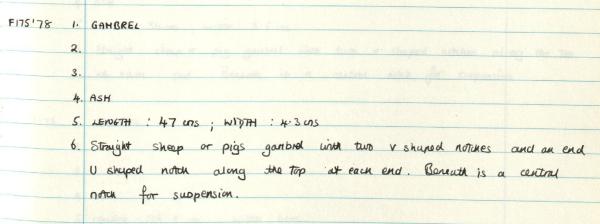 F175'78 1. GAMBREL
2.
3.
4. ASH
5. LENGTH : 47 cms ; WIDTH : 4.3 cms
6. Straight sheep or pigs gambrel with two v shaped notches and an end
U shaped notch along the top at each end. Beneath is a central
notch for suspension.